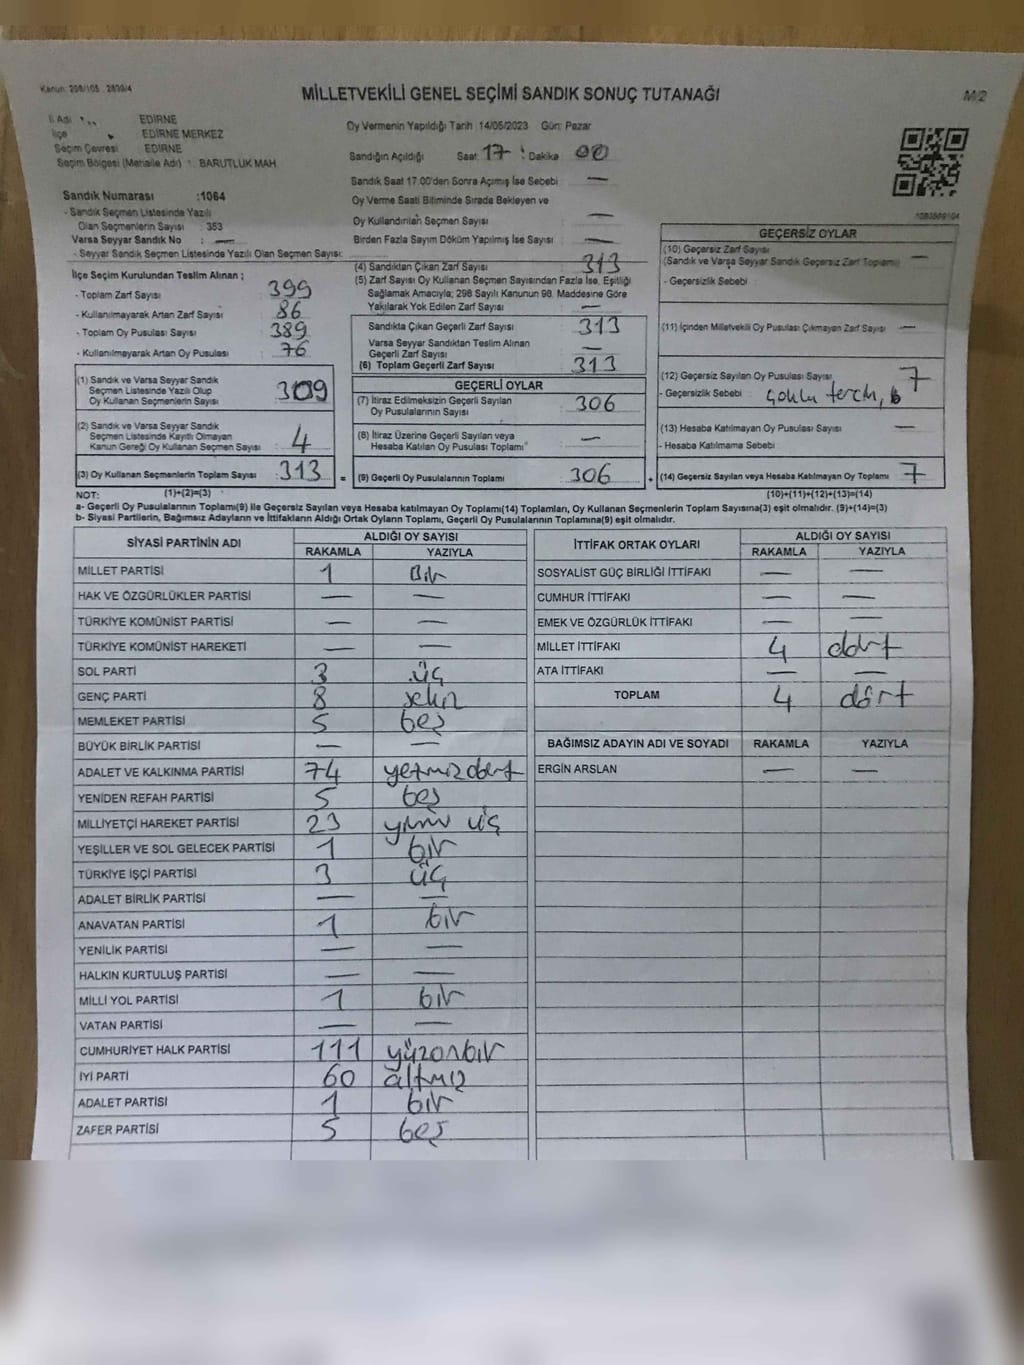 Kanun: 298/105 . 2839/4
MİLLETVEKİLİ GENEL SEÇİMİ SANDIK SONUÇ TUTANAĞI
M/2
İl Adı : EDİRNE
İlçe : EDİRNE MERKEZ
Seçim Çevresi : EDİRNE
Seçim Bölgesi (Mahalle Adı) : BARUTLUK MAH.
Oy Vermenin Yapıldığı Tarih 14/05/2023 Gün: Pazar
Sandığın Açıldığı Saat 17 : Dakika 00
Sandık Saat 17.00'den Sonra Açımış İse Sebebi —
Oy Verme Saati Bitiminde Sırada Bekleyen ve
Oy Kullandırılan Seçmen Sayısı —
Birden Fazla Sayım Döküm Yapılmış İse Sayısı —
Sandık Numarası :1064
- Sandık Seçmen Listesinde Yazılı
Olan Seçmenlerin Sayısı : 353
Varsa Seyyar Sandık No : —
- Seyyar Sandık Seçmen Listesinde Yazılı Olan Seçmen Sayısı:
İlçe Seçim Kurulundan Teslim Alınan ;
- Toplam Zarf Sayısı : 399
- Kullanılmayarak Artan Zarf Sayısı : 86
- Toplam Oy Pusulası Sayısı : 389
- Kullanılmayarak Artan Oy Pusulası : 76
(1) Sandık ve Varsa Seyyar Sandık
Seçmen Listesinde Yazılı Olup
Oy Kullanan Seçmenlerin Sayısı : 309
(2) Sandık ve Varsa Seyyar Sandık
Seçmen Listesinde Kayıtlı Olmayan
Kanun Gereği Oy Kullanan Seçmen Sayısı : 4
(3) Oy Kullanan Seçmenlerin Toplam Sayısı : 313
(4) Sandıktan Çıkan Zarf Sayısı : 313
(5) Zarf Sayısı Oy Kullanan Seçmen Sayısından Fazla İse, Eşitliği
Sağlamak Amacıyla; 298 Sayılı Kanunun 98. Maddesine Göre
Yakılarak Yok Edilen Zarf Sayısı : —
Sandıkta Çıkan Geçerli Zarf Sayısı : 313
Varsa Seyyar Sandıktan Teslim Alınan
Geçerli Zarf Sayısı : —
(6) Toplam Geçerli Zarf Sayısı : 313
GEÇERLİ OYLAR
(7) İtiraz Edilmeksizin Geçerli Sayılan
Oy Pusulalarının Sayısı : 306
(8) İtiraz Üzerine Geçerli Sayılan veya
Hesaba Katılan Oy Pusulası Toplamı : —
= (9) Geçerli Oy Pusulalarının Toplamı : 306
GEÇERSİZ OYLAR
(10) Geçersiz Zarf Sayısı
(Sandık ve Varşa Seyyar Sandık Geçersiz Zarf Toplamı) —
- Geçersizlik Sebebi :
(11) İçinden Milletvekili Oy Pusulası Çıkmayan Zarf Sayısı : —
(12) Geçersiz Sayılan Oy Pusulası Sayısı : 7
- Geçersizlik Sebebi : çoklu tercih,
(13) Hesaba Katılmayan Oy Pusulası Sayısı : —
- Hesaba Katılmama Sebebi :
+ (14) Geçersiz Sayılan veya Hesaba Katılmayan Oy Toplamı : 7
NOT: (1)+(2)=(3)
(10)+(11)+(12)+(13)=(14)
a- Geçerli Oy Pusulalarının Toplamı(9) ile Geçersiz Sayılan veya Hesaba katılmayan Oy Toplamı(14) Toplamları, Oy Kullanan Seçmenlerin Toplam Sayısına(3) eşit olmalıdır. (9)+(14)=(3)
b- Siyasi Partilerin, Bağımsız Adayların ve İttifakların Aldığı Ortak Oyların Toplamı, Geçerli Oy Pusulalarının Toplamına(9) eşit olmalıdır.
SİYASİ PARTİNİN ADI ALDIĞI OY SAYISI
RAKAMLA YAZIYLA
MİLLET PARTİSİ 1 Bir
HAK VE ÖZGÜRLÜKLER PARTİSİ — —
TÜRKİYE KOMÜNİST PARTİSİ — —
TÜRKİYE KOMÜNİST HAREKETİ — —
SOL PARTİ 3 üç
GENÇ PARTİ 8 sekiz
MEMLEKET PARTİSİ 5 beş
BÜYÜK BİRLİK PARTİSİ — —
ADALET VE KALKINMA PARTİSİ 74 yetmiş dört
YENİDEN REFAH PARTİSİ 5 beş
MİLLİYETÇİ HAREKET PARTİSİ 23 yirmi üç
YEŞİLLER VE SOL GELECEK PARTİSİ 1 bir
TÜRKİYE İŞÇİ PARTİSİ 3 üç
ADALET BİRLİK PARTİSİ — —
ANAVATAN PARTİSİ 1 bir
YENİLİK PARTİSİ — —
HALKIN KURTULUŞ PARTİSİ — —
MİLLİ YOL PARTİSİ 1 bir
VATAN PARTİSİ — —
CUMHURİYET HALK PARTİSİ 111 yüzonbir
İYİ PARTİ 60 altmış
ADALET PARTİSİ 1 bir
ZAFER PARTİSİ 5 beş
İTTİFAK ORTAK OYLARI ALDIĞI OY SAYISI
RAKAMLA YAZIYLA
SOSYALİST GÜÇ BİRLİĞİ İTTİFAKI — —
CUMHUR İTTİFAKI — —
EMEK VE ÖZGÜRLÜK İTTİFAKI — —
MİLLET İTTİFAKI 4 dört
ATA İTTİFAKI — —
TOPLAM 4 dört
BAĞIMSIZ ADAYIN ADI VE SOYADI RAKAMLA YAZIYLA
ERGİN ARSLAN — —